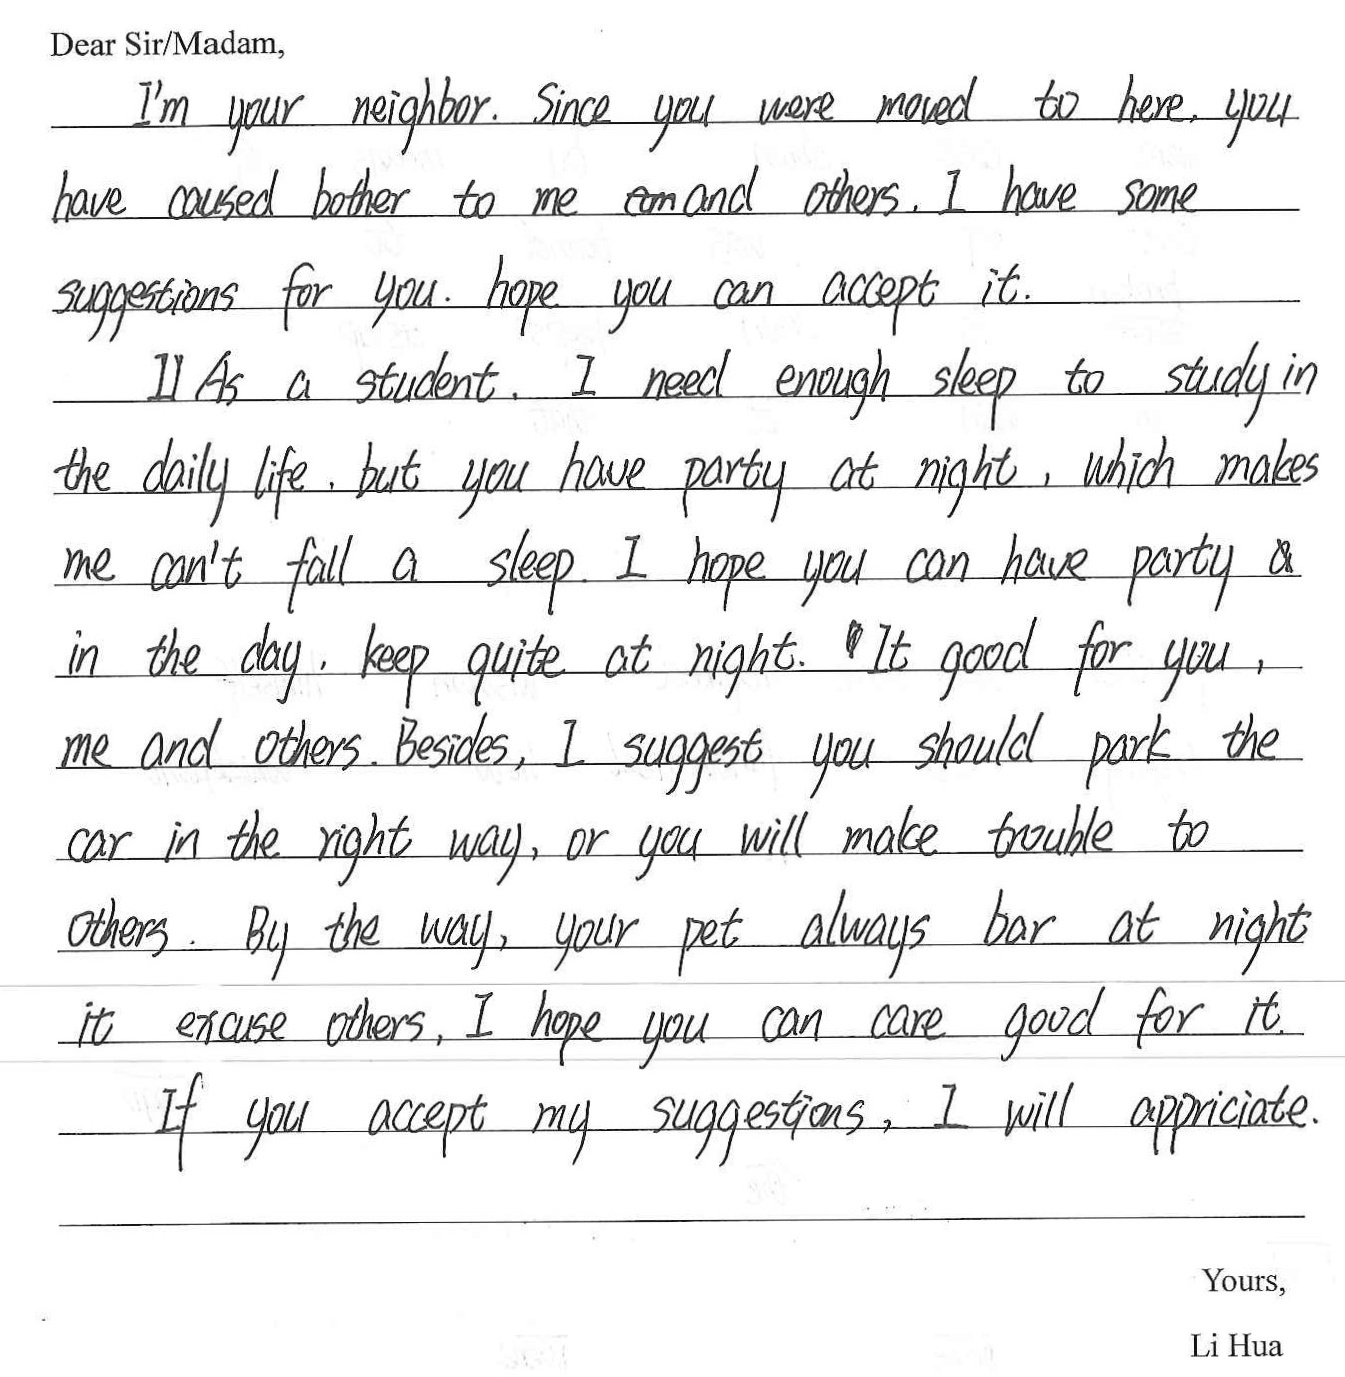 Dear Sir/Madam,
I'm your neighbor. Since you were moved to here, you
have caused bother to me and others. I have some
suggestions for you. hope you can accept it.
As a student. I need enough sleep to study in
the daily life, but you have party at night, which makes
me can't fall a sleep. I hope you can have party
in the day, keep quite at night. It good for you,
me and others. Besides, I suggest you should park the
car in the right way, or you will make trouble to
others. By the way, your pet always bar at night
it excuse others, I hope you can care good for it.
If you accept my suggestions, I will appriciate.
Yours,
Li Hua